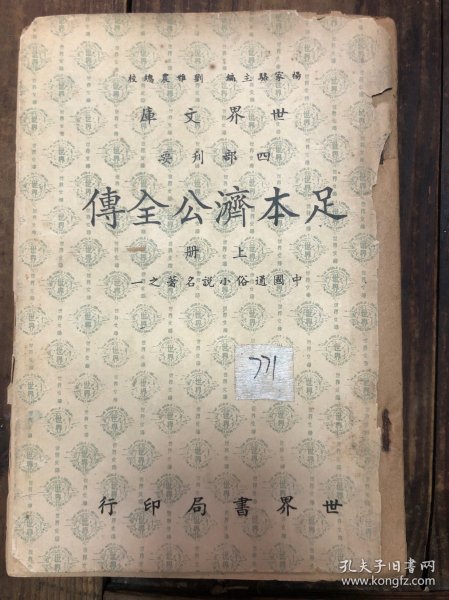 楊家駱主編 劉雅農總校
世界文庫
四部刊要
足本濟公全傳
上冊
中國通俗小說名著之一
771
世界書局印行
孔夫子旧书网
www.kongfz.com